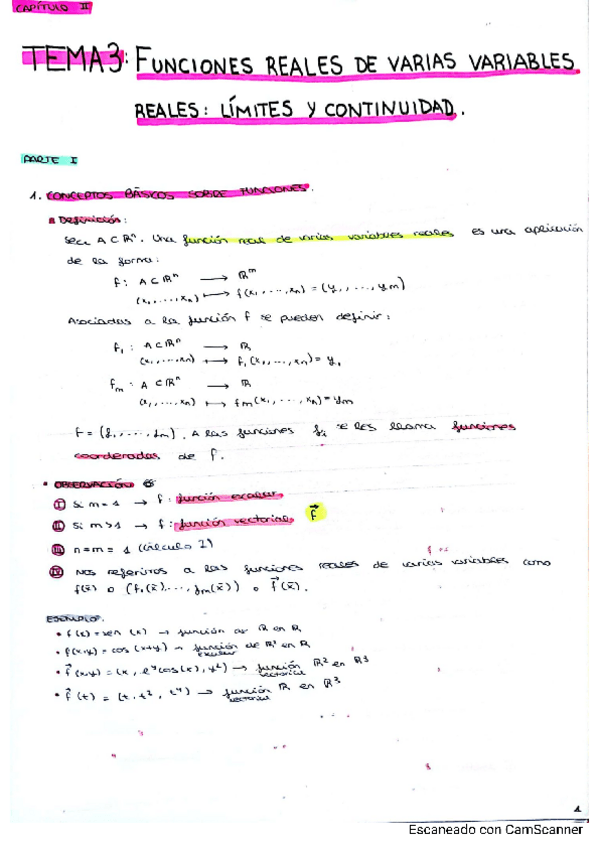 CAPÍTULO II
TEMA 3: FUNCIONES REALES DE VARIAS VARIABLES
REALES: LÍMITES Y CONTINUIDAD.
PARTE I
1. CONCEPTOS BÁSICOS SOBRE FUNCIONES.
Definición:
Sea A ⊂ ℝⁿ. Una función real de varias variables reales es una aplicación
de la forma:
f: A ⊂ ℝⁿ → ℝᵐ
(x₁, ..., xₙ) ↦ f(x₁, ..., xₙ) = (y₁, ..., yₘ)
Asociadas a la función f se pueden definir:
f₁: A ⊂ ℝⁿ → ℝ
(x₁, ..., xₙ) ↦ f₁(x₁, ..., xₙ) = y₁
fₘ: A ⊂ ℝⁿ → ℝ
(x₁, ..., xₙ) ↦ fₘ(x₁, ..., xₙ) = yₘ
f = (f₁, ..., fₘ). A las funciones fᵢ se les llama funciones
coordenadas de f.
• OBSERVACIÓN
I Si m = 1 → f: función escalar
II Si m > 1 → f: función vectorial f⃗
III n = m = 1 (Cálculo I)
IV Nos referimos a las funciones reales de varias variables como
f(x̄) o (f₁(x̄), ..., fₘ(x̄)) o f⃗(x̄).
EJEMPLO.
• f(x) = sen(x) → función de ℝ en ℝ
• f(x,y) = cos(x+y) → función escalar de ℝ² en ℝ
• f⃗(x,y) = (x, eʸcos(x), y²) → función vectorial ℝ² en ℝ³
• f⃗(t) = (t, t², t⁴) → función vectorial ℝ en ℝ³
1
Escaneado con CamScanner